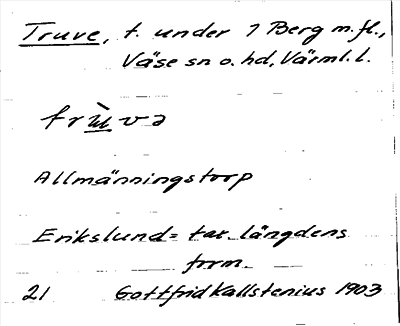 Truve, t. under 1 Berg m.fl.,
Väse sn o. hd, Värml. l.
trùvə
Allmänningstorp
Erikslund = tax. längdens
form.
21 Gottfrid Kallstenius 1903